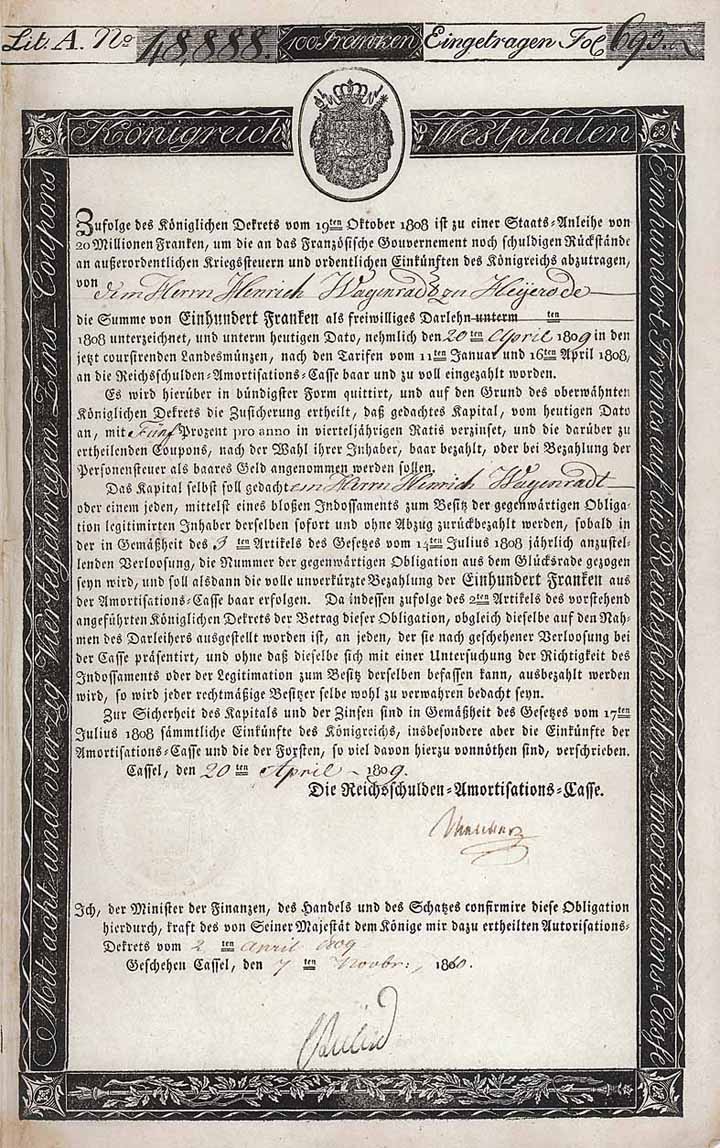 Lit. A. No 48,888. 100 Franken Eingetragen Fol 693.
Königreich Westphalen
Mit acht und vierzig Vierteljährigen Zins Coupons
Einhundert Francs auf die Reichsschulden-Amortisations-Casse
Zufolge des Königlichen Dekrets vom 19ten Oktober 1808 ist zu einer Staats-Anleihe von
20 Millionen Franken, um die an das Französische Gouvernement noch schuldigen Rückstände
an außerordentlichen Kriegssteuern und ordentlichen Einkünften des Königreichs abzutragen,
von dem Herrn Henrich Wagenradt zu Heyerode
die Summe von Einhundert Franken als freiwilliges Darlehn unterm ten
1808 unterzeichnet, und unterm heutigen Dato, nehmlich den 20ten April 1809 in den
jetzt coursirenden Landesmünzen, nach den Tarifen vom 11ten Januar und 16ten April 1808,
an die Reichsschulden-Amortisations-Casse baar und zu voll eingezahlt worden.
Es wird hierüber in bündigster Form quittirt, und auf den Grund des oberwähnten
Königlichen Dekrets die Zusicherung ertheilt, daß gedachtes Kapital, vom heutigen Dato
an, mit Fünf Prozent pro anno in vierteljährigen Ratis verzinset, und die darüber zu
ertheilenden Coupons, nach der Wahl ihrer Inhaber, baar bezahlt, oder bei Bezahlung der
Personensteuer als baares Geld angenommen werden sollen.
Das Kapital selbst soll gedachtem Herrn Henrich Wagenradt
oder einem jeden, mittelst eines bloßen Indossaments zum Besitz der gegenwärtigen Obliga-
tion legitimirten Inhaber derselben sofort und ohne Abzug zurückbezahlt werden, sobald in
der in Gemäßheit des 3ten Artikels des Gesetzes vom 14ten Julius 1808 jährlich anzustel-
lenden Verloosung, die Nummer der gegenwärtigen Obligation aus dem Glücksrade gezogen
seyn wird, und soll alsdann die volle unverkürzte Bezahlung der Einhundert Franken aus
der Amortisations-Casse baar erfolgen. Da indessen zufolge des 2ten Artikels des vorstehend
angeführten Königlichen Dekrets der Betrag dieser Obligation, obgleich dieselbe auf den Nah-
men des Darleihers ausgestellt worden ist, an jeden, der sie nach geschehener Verloosung bei
der Casse präsentirt, und ohne daß dieselbe sich mit einer Untersuchung der Richtigkeit des
Indossaments oder der Legitimation zum Besitz derselben befassen kann, ausbezahlt werden
wird, so wird jeder rechtmäßige Besitzer selbe wohl zu verwahren bedacht seyn.
Zur Sicherheit des Kapitals und der Zinsen sind in Gemäßheit des Gesetzes vom 17ten
Julius 1808 sämmtliche Einkünfte des Königreichs, insbesondere aber die Einkünfte der
Amortisations-Casse und die der Forsten, so viel davon hierzu vonnöthen sind, verschrieben.
Cassel, den 20ten April 1809.
Die Reichsschulden-Amortisations-Casse.
Ich, der Minister der Finanzen, des Handels und des Schatzes confirmire diese Obligation
hierdurch, kraft des von Seiner Majestät dem Könige mir dazu ertheilten Autorisations-
Dekrets vom 2ten April 1809
Geschehen Cassel, den 7ten Novbr.